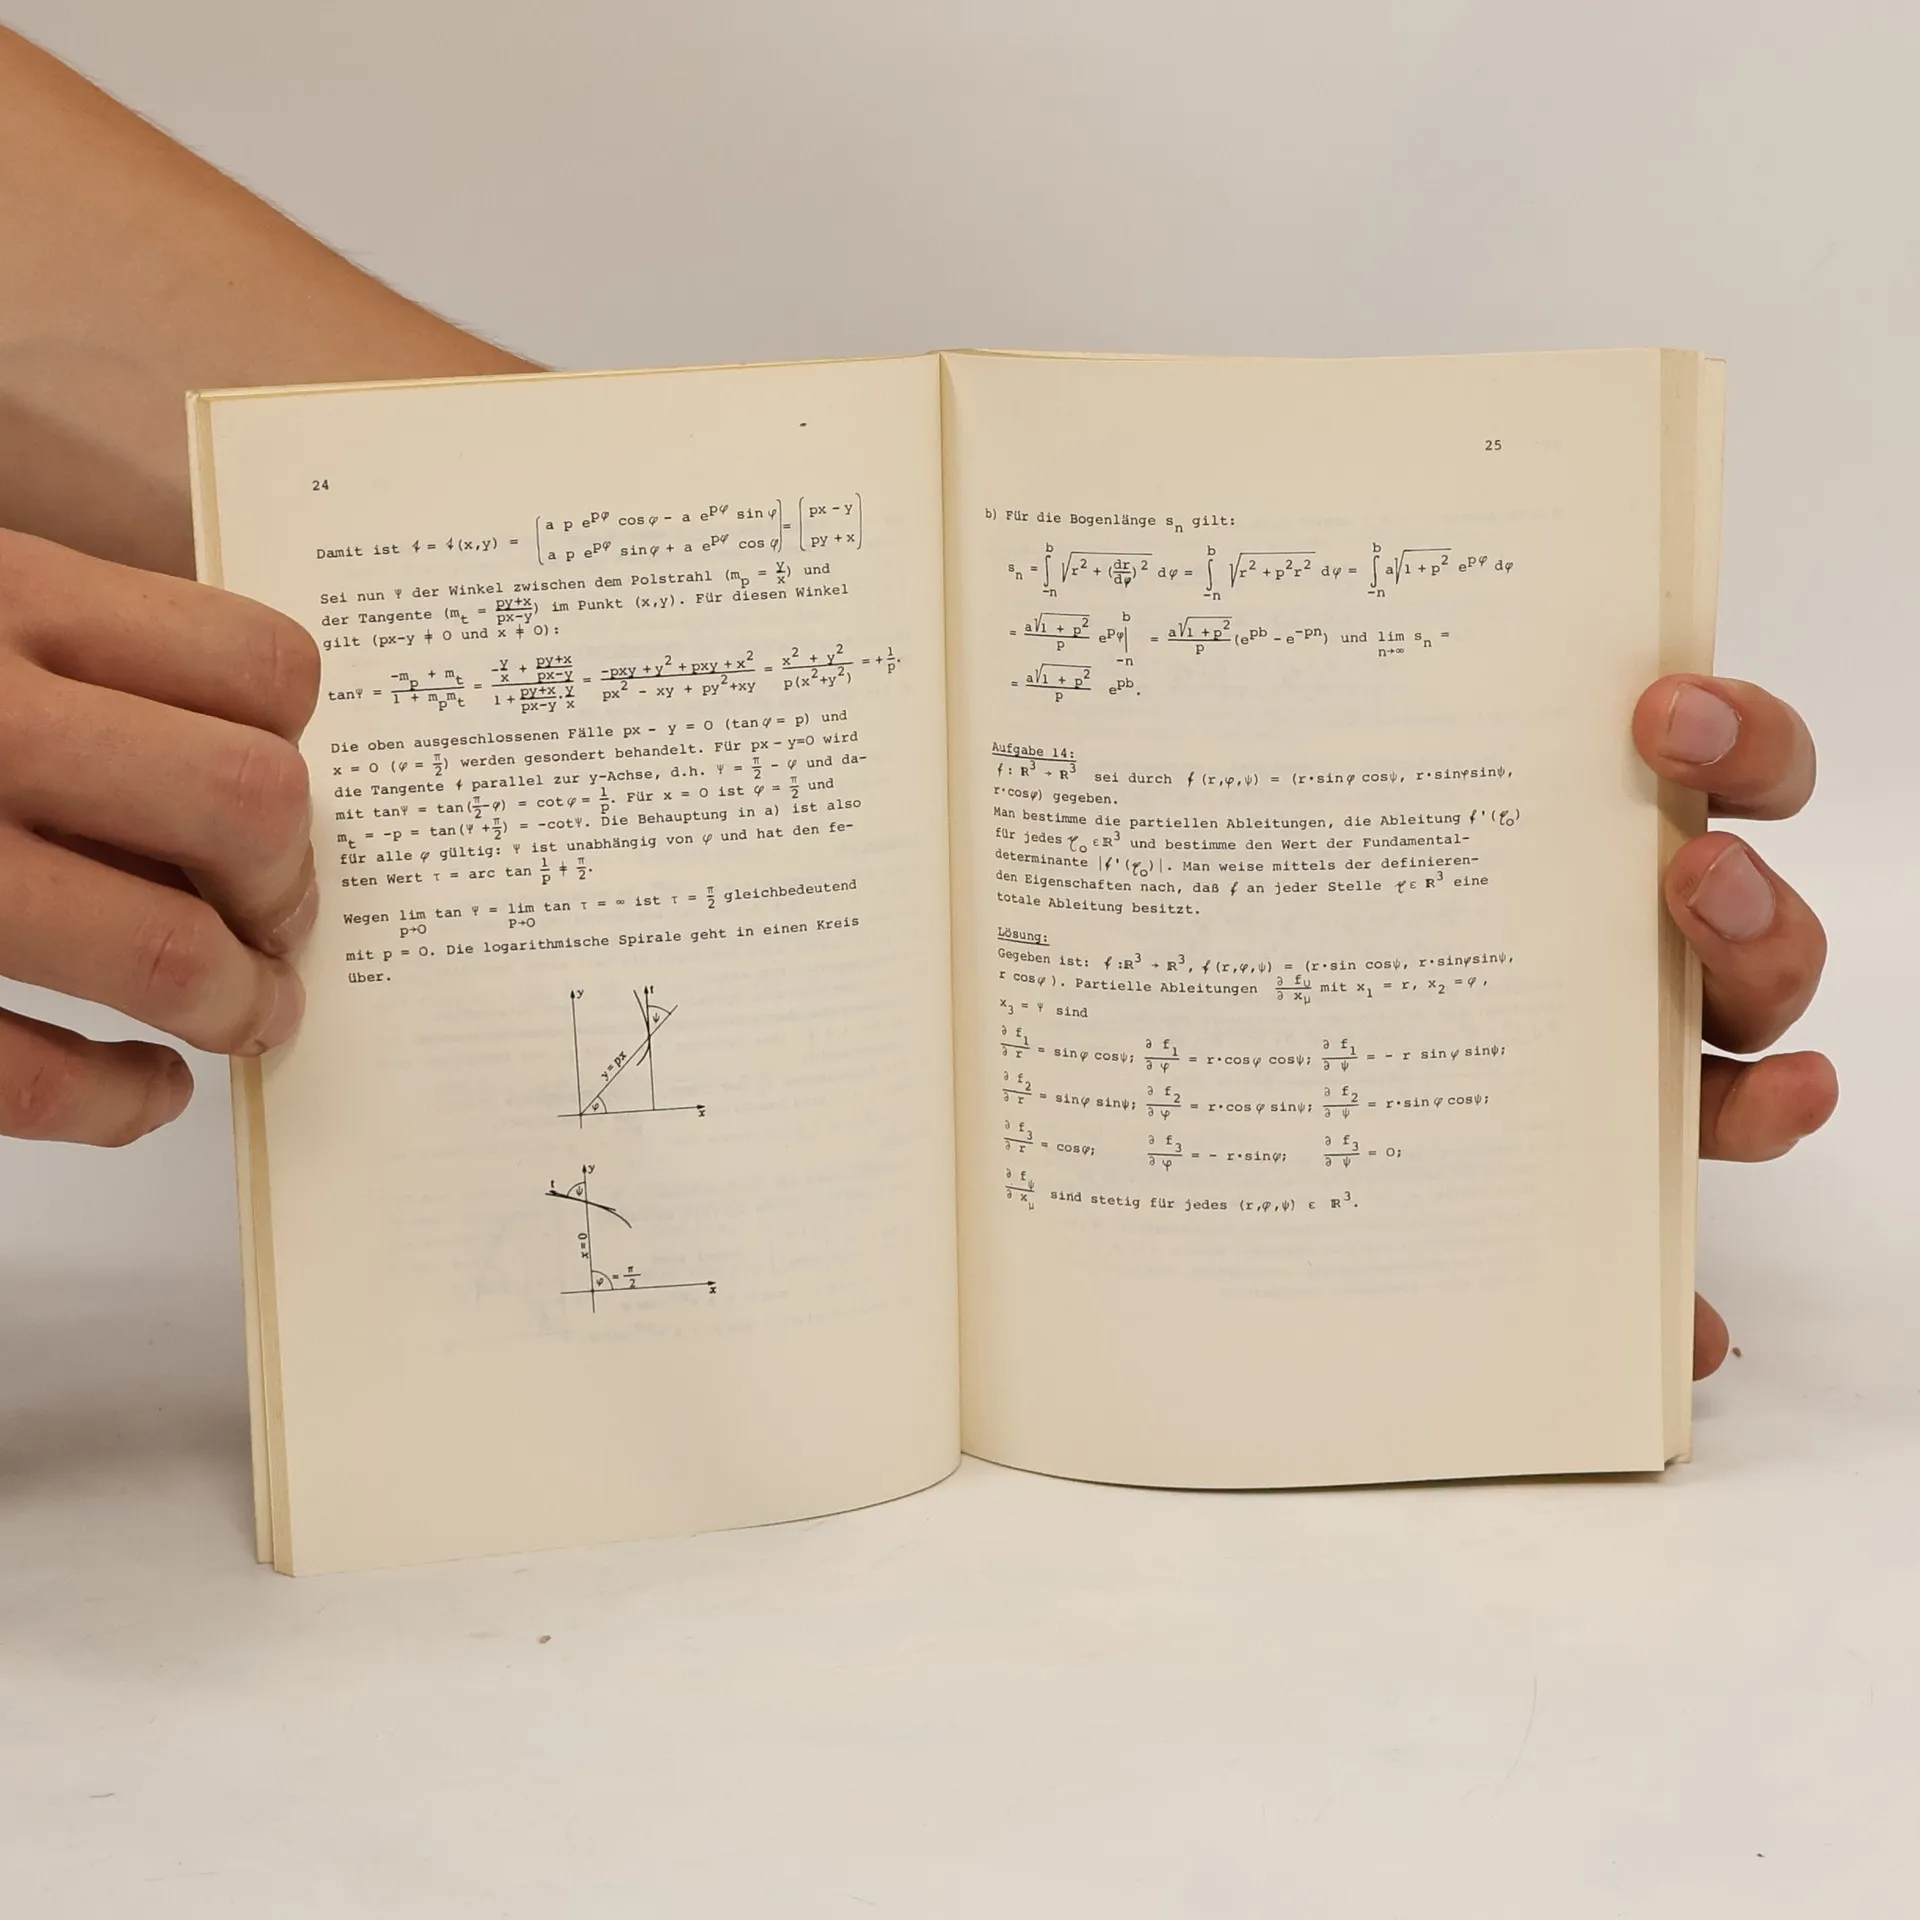 24
Damit ist 𝓉 = 𝓉(x,y) = (a p e^{pφ} cosφ - a e^{pφ} sinφ / a p e^{pφ} sinφ + a e^{pφ} cosφ) = (px - y / py + x)
Sei nun Ψ der Winkel zwischen dem Polstrahl (m_p = y/x) und
der Tangente (m_t = (py+x)/(px-y)) im Punkt (x,y). Für diesen Winkel
gilt (px-y ≠ 0 und x ≠ 0):
tanΨ = (-m_p + m_t)/(1 + m_p m_t) = (-y/x + (py+x)/(px-y))/(1 + (py+x)/(px-y)·y/x) = (-pxy + y² + pxy + x²)/(px² - xy + py² + xy) = (x² + y²)/(p(x²+y²)) = +1/p.
Die oben ausgeschlossenen Fälle px - y = 0 (tanφ = p) und
x = 0 (φ = π/2) werden gesondert behandelt. Für px - y=0 wird
die Tangente 𝓉 parallel zur y-Achse, d.h. Ψ = π/2 - φ und da-
mit tanΨ = tan(π/2-φ) = cotφ = 1/p. Für x = 0 ist φ = π/2 und
m_t = -p = tan(Ψ+π/2) = -cotΨ. Die Behauptung in a) ist also
für alle φ gültig: Ψ ist unabhängig von φ und hat den fe-
sten Wert τ = arc tan 1/p ≠ π/2.
Wegen lim tan Ψ = lim tan τ = ∞ ist τ = π/2 gleichbedeutend
p→0 p→0
mit p = 0. Die logarithmische Spirale geht in einen Kreis
über.
y
t
ψ
y=px
φ
x
y
t
ψ
x=0
φ = π/2
x
25
b) Für die Bogenlänge s_n gilt:
s_n = ∫_{-n}^{b} √(r² + (dr/dφ)²) dφ = ∫_{-n}^{b} √(r² + p²r²) dφ = ∫_{-n}^{b} a√(1 + p²) e^{pφ} dφ
= (a√(1 + p²))/p e^{pφ}|_{-n}^{b} = (a√(1+p²))/p (e^{pb} - e^{-pn}) und lim_{n→∞} s_n =
= (a√(1 + p²))/p e^{pb}.
Aufgabe 14:
f: R³ → R³ sei durch f(r,φ,ψ) = (r·sinφ cosψ, r·sinφsinψ,
r·cosφ) gegeben.
Man bestimme die partiellen Ableitungen, die Ableitung f'(𝓍₀)
für jedes 𝓍₀ ε R³ und bestimme den Wert der Fundamental-
determinante |f'(𝓍₀)|. Man weise mittels der definieren-
den Eigenschaften nach, daß f an jeder Stelle 𝓍 ε R³ eine
totale Ableitung besitzt.
Lösung:
Gegeben ist: f:R³ → R³, f(r,φ,ψ) = (r·sin cosψ, r·sinφsinψ,
r cosφ). Partielle Ableitungen ∂f_υ/∂x_μ mit x₁ = r, x₂ = φ,
x₃ = Ψ sind
∂f₁/∂r = sinφ cosψ; ∂f₁/∂φ = r·cosφ cosψ; ∂f₁/∂ψ = - r sinφ sinψ;
∂f₂/∂r = sinφ sinψ; ∂f₂/∂φ = r·cosφ sinψ; ∂f₂/∂ψ = r·sinφ cosψ;
∂f₃/∂r = cosφ; ∂f₃/∂φ = - r·sinφ; ∂f₃/∂ψ = 0;
∂f_ψ/∂x_μ sind stetig für jedes (r,φ,ψ) ε R³.